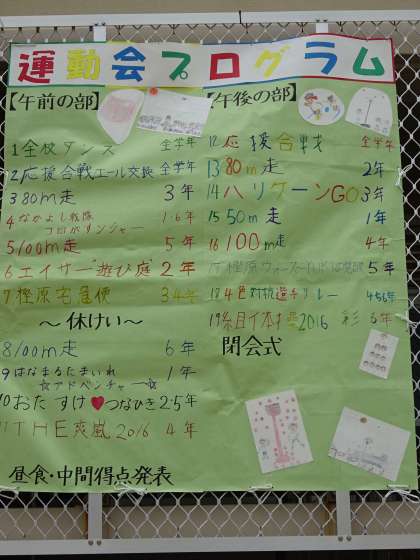 運動会プログラム
【午前の部】
1 全校ダンス 全学年
2 応援合戦エール交換 全学年
3 80m走 3年
4 なかよし戦隊
コロボリンジャー 1・6年
5 100m走 5年
6 エイサー遊び庭 2年
7 橿原宅急便 3・4年
～休けい～
8 100m走 6年
9 はなまるたまいれ
☆アドベンチャー☆ 1年
10 おたすけ♥つなひき 2・5年
11 THE 爽嵐2016 4年
昼食・中間得点発表
【午後の部】
12 応援合戦 全学年
13 80m走 2年
14 ハリケーンGO 3年
15 50m走 1年
16 100m走 4年
17 橿原 5年
18 4色対抗選手リレー 4・5・6年
19 組体操2016 彩 6年
閉会式